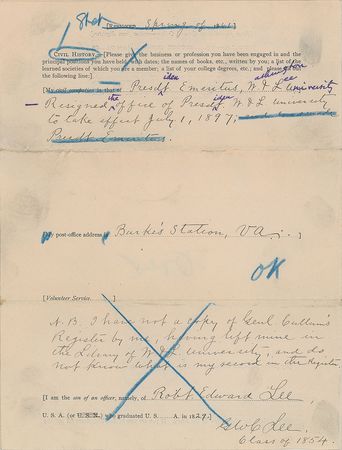 Shet
[Spring of 1861]
[CIVIL HISTORY.—[Please give the business or profession you have been engaged in and the
principal positions you have held with dates; the names of books, etc., written by you; a list of the
learned societies of which you are a member; a list of your college degrees, etc.; and please
the following line:]
[My civil occupation is that of] President Emeritus, W. & L. University
Washington Lee
— Resigned the office of President W & L University
to take effect July 1, 1897;
Presdt Emeritus.
[My post-office address] Burke's Station, VA.]
OK
[Volunteer Service. ]
N.B. I have not a copy of Genl. Cullum's
Register by me, having left mine in
the Library of W. & L. University, and do
not know what is my record in the Register.
[I am the son of an officer, namely, of Robt Edward Lee,
U. S. A. (or U. S. N.) who graduated U. S. A. in 1829.]
G W C Lee.
Class of 1854.